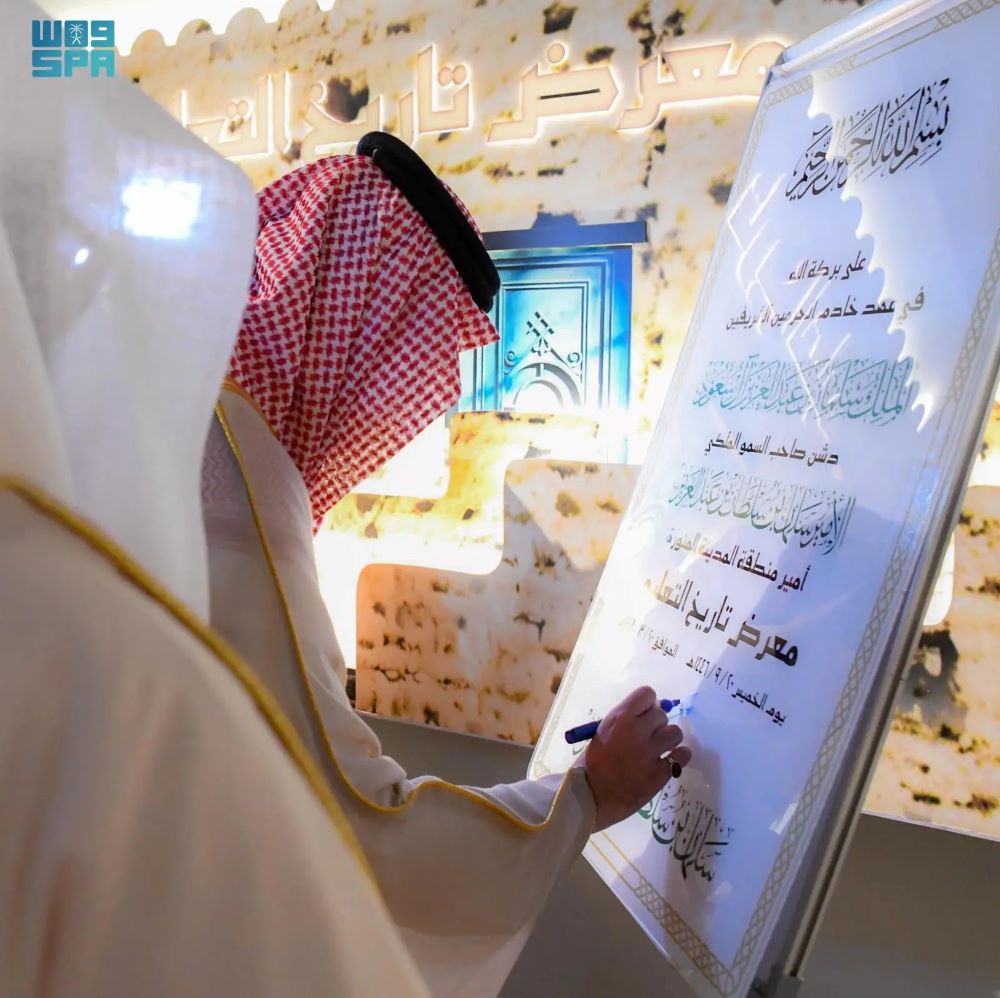 واس
SPA
معرض تاريخ التعليم
بسم الله الرحمن الرحيم
على بركة الله
في عهد خادم الحرمين الشريفين
الملك سلمان بن عبدالعزيز آل سعود
دشن صاحب السمو الملكي
الأمير سلمان بن سلطان بن عبدالعزيز
أمير منطقة المدينة المنورة
معرض تاريخ التعليم
يوم الخميس ١٤٤٦/٩/٢٠هـ الموافق
سلمان بن سلطان